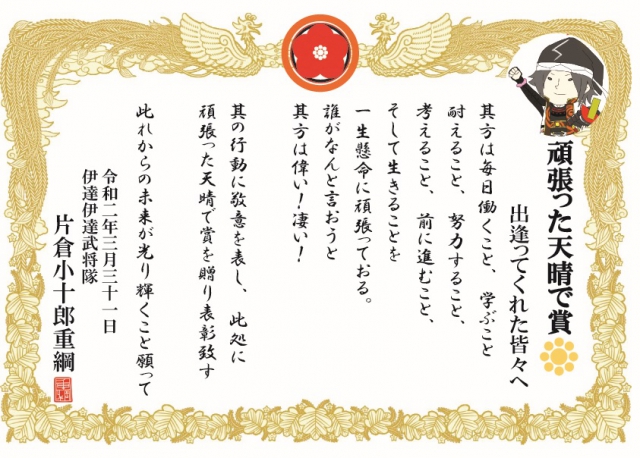 頑張った天晴で賞
出逢ってくれた皆々へ
其方は毎日働くこと、学ぶこと
耐えること、努力すること、
考えること、前に進むこと、
そして生きることを
一生懸命に頑張っておる。
誰がなんと言おうと
其方は偉い!凄い!
其の行動に敬意を表し、此処に
頑張った天晴で賞を贈り表彰致す
此れからの未来が光り輝くこと願って
令和二年三月三十一日
伊達伊達武将隊
片倉小十郎重綱